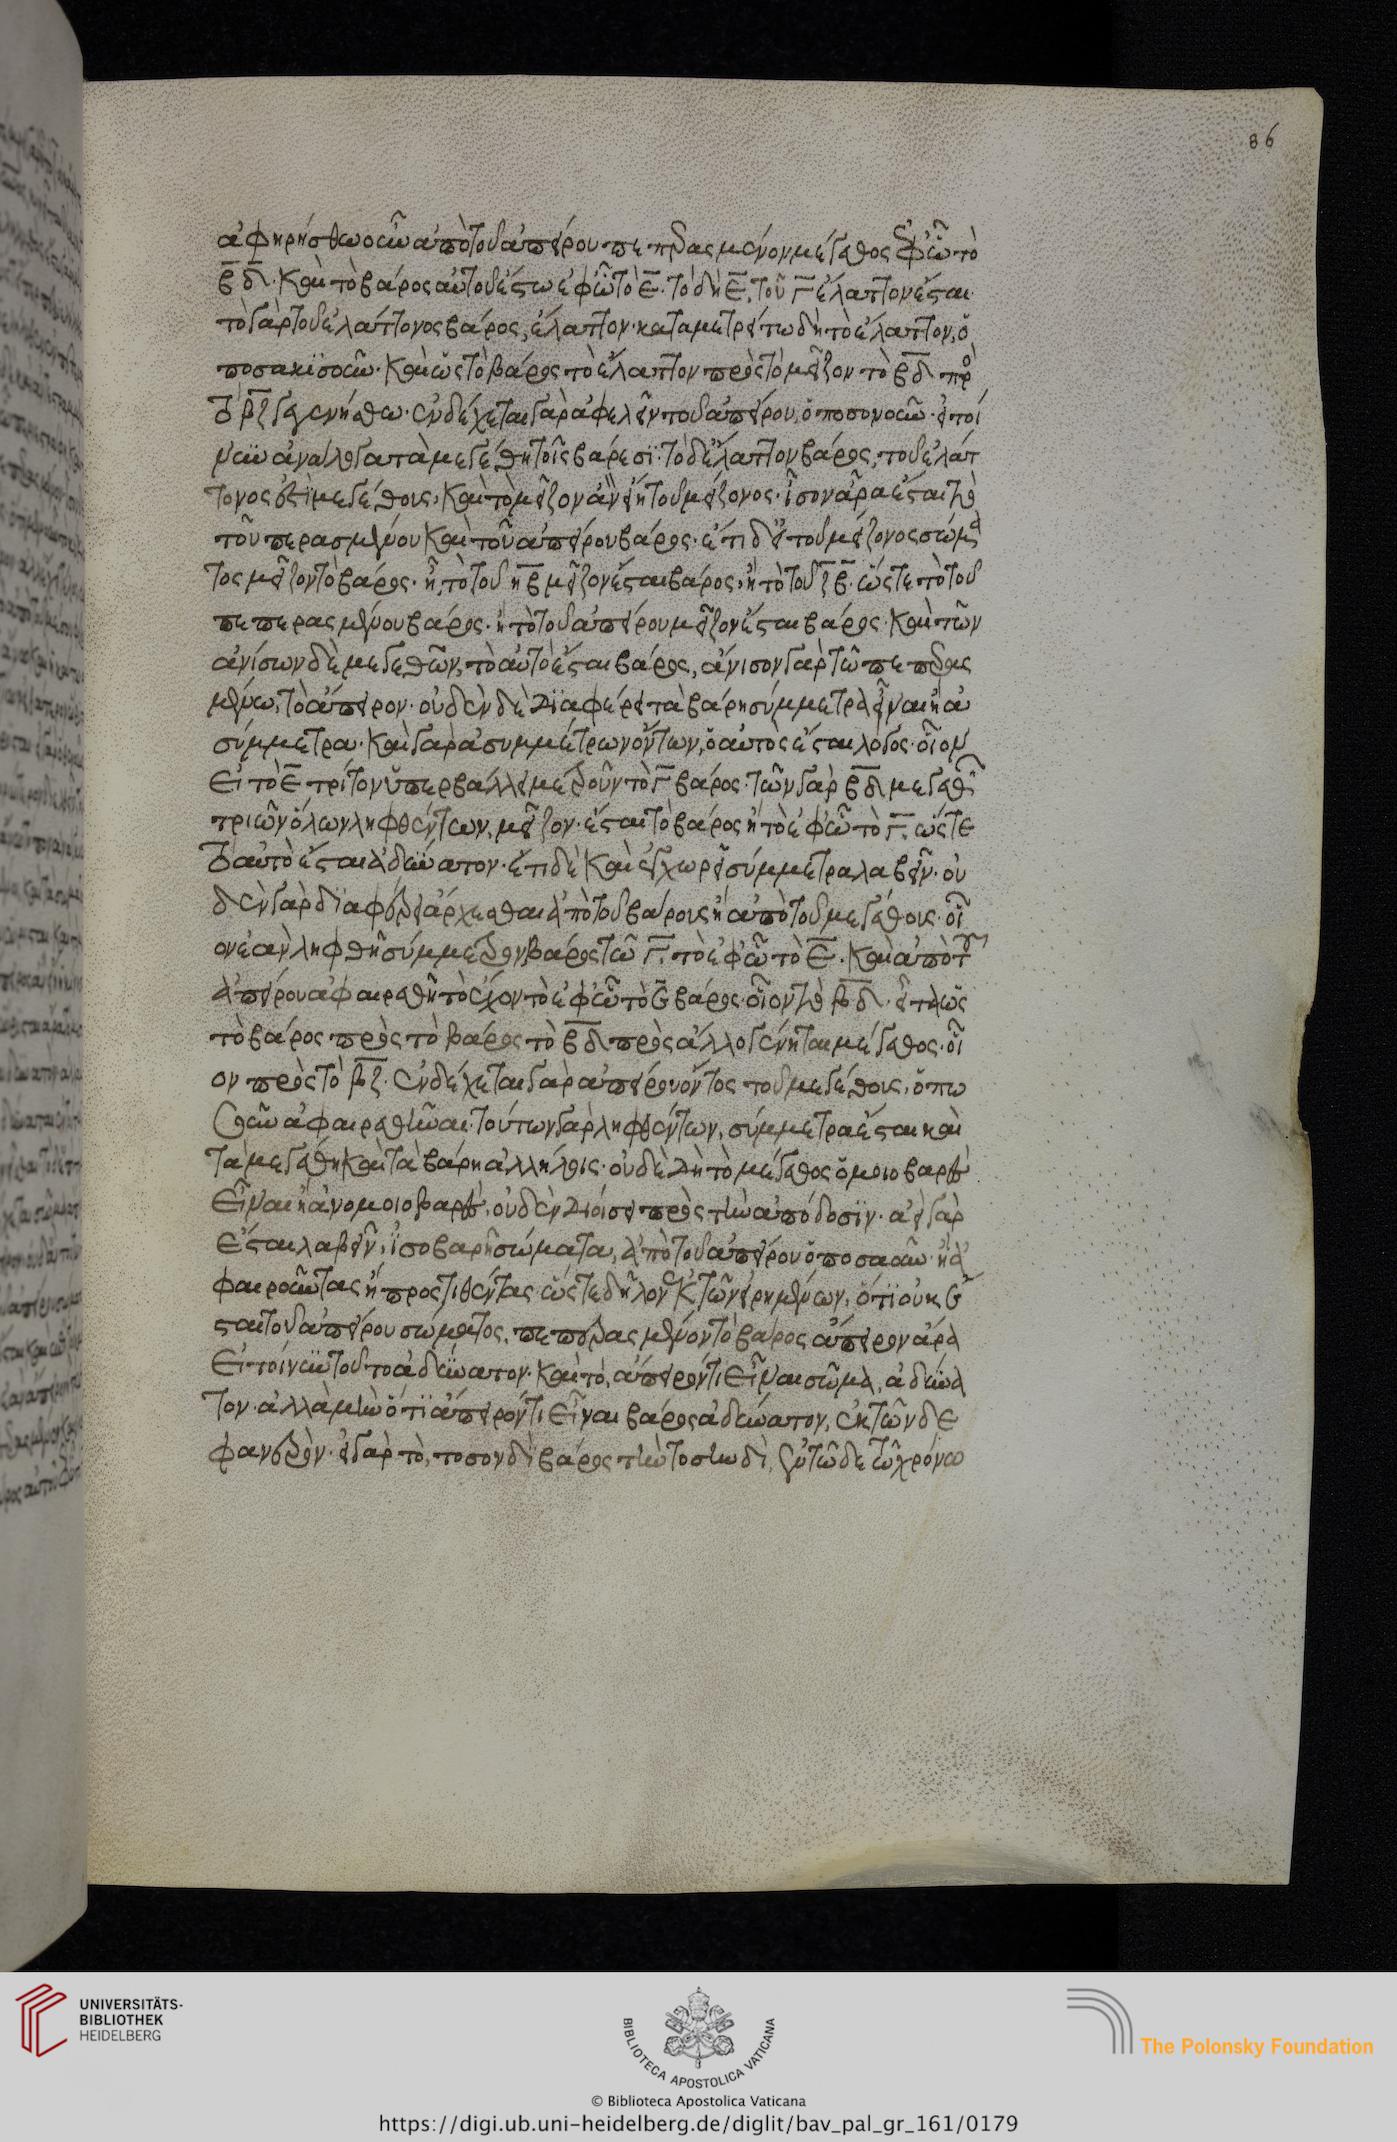 ἀφηρήσθω οὖν ἀπὸ τοῦ ἀπείρου πεπερασμένον μέγεθος ἐφ' ᾧ τὸ
β̅δ̅. καὶ τὸ βάρος αὐτοῦ ἔστω ἐφ' ᾧ τὸ ε̅. τὸ δὴ ε̅, τοῦ γ̅ ἔλαττον ἔσται.
τὸ γὰρ τοῦ ἐλάττονος βάρος, ἔλαττον. καταμετρείτω δὴ τὸ ἔλαττον, ὁ
ποσακισοῦν. καὶ ὡς τὸ βάρος τὸ ἔλαττον πρὸς τὸ μεῖζον τὸ β̅δ̅ πρὸ
τὸ β̅ζ̅ γεγενήσθω. ἐνδέχεται γὰρ ἀφελεῖν τοῦ ἀπείρου, ὁποσονοῦν. εἰ τοί
νυν ἀνάλογα τὰ μεγέθη τοῖς βάρεσι. τὸ δ' ἔλαττον βάρος, τοῦ ἐλάτ
τονος ἐστὶ μεγέθους, καὶ τὸ μεῖζον ἂν εἴη τοῦ μείζονος. ἴσον ἄρα ἔσται τὸ
τοῦ περασμένου καὶ τοῦ ἀπείρου βάρος. ἔτι δ' εἰ τοῦ μείζονος σώμα
τος μεῖζον τὸ βάρος. ἢ, τὸ τοῦ η̅β̅ μεῖζον ἔσται βάρος, ἢ τὸ τοῦ ζ̅β̅. ὥστε τὸ τοῦ
πεπερασμένου βάρος. ἢ τὸ τοῦ ἀπείρου μεῖζον ἔσται βάρος. καὶ τῶν
ἀνίσων δὲ μεγεθῶν, τὸ αὐτὸ ἔσται βάρος, ἄνισον γὰρ τῷ πεπερασ
μένω, τὸ ἄπειρον. οὐδὲν δὲ διαφέρει τὰ βάρη σύμμετρα εἶναι ἢ ἀ
σύμμετρα. καὶ γὰρ ἀσυμμέτρων ὄντων, ὁ αὐτὸς ἔσται λόγος. οἷον
εἰ τὸ ε̅ τρίτον ὑπερβάλλει μετροῦν τὸ γ̅ βάρος. τῶν γὰρ β̅δ̅ μεγεθῶν
τριῶν ὅλων ληφθέντων, μεῖζον. ἔσται τὸ βάρος ἢ τὸ ἐφ' ᾧ τὸ γ̅. ὥστε
τὸ αὐτὸ ἔσται ἀδύνατον. ἔτι δὲ καὶ ἐγχωρεῖ σύμμετρα λαβεῖν. οὐ
δὲν γὰρ διαφέρει ἄρχεσθαι ἀπὸ τοῦ βάρους ἢ ἀπὸ τοῦ μεγέθους. οἷ
ον ἐὰν ληφθῆ σύμμετρον βάρος τῷ γ̅, τὸ ἐφ' ᾧ τὸ ε̅. καὶ ἀπὸ τοῦ
ἀπείρου ἀφαιρεθῆ τὸ ἔχον τὸ ἐφ' ᾧ τὸ ε̅ βάρος. οἷον τὸ β̅δ̅. εἶτα ὡς
τὸ βάρος πρὸς τὸ βάρος τὸ β̅δ̅ πρὸς ἄλλο γένηται μέγεθος. οἷ
ον πρὸς τὸ β̅ζ̅. ἐνδέχεται γὰρ ἀπείρου ὄντος τοῦ μεγέθους, ὁπο
σοῦν ἀφαιρεθῆναι. τούτων γὰρ ληφθέντων, σύμμετρα ἔσται καὶ
τὰ μεγέθη καὶ τὰ βάρη ἀλλήλοις. οὐδὲ δὴ τὸ μέγεθος ὁμοιοβαρὲς
εἶναι ἢ ἀνομοιοβαρὲς, οὐδὲν διοίσει πρὸς τὴν ἀπόδοσιν. ἀεὶ γὰρ
ἔσται λαβεῖν, ἰσοβαρῆ σώματα, ἀπὸ τοῦ ἀπείρου ὁποσαοῦν. ἢ ἀ
φαιροῦντας ἢ προστιθέντας. ὥστε δῆλον ἐκ τῶν εἰρημένων, ὅτι οὐκ ἔ
σται τοῦ ἀπείρου σώματος, πεπερασμένον τὸ βάρος ἄπειρον ἄρα
εἰ τοίνυν τοῦτο ἀδύνατον. καὶ τὸ, ἄπειρόν τι εἶναι σῶμα, ἀδύνα
τον. ἀλλὰ μὴν ὅτι ἄπειρόν τι εἶναι βάρος ἀδύνατον, ἐκ τῶν δε
φανερόν. εἰ γὰρ τὸ, τοσονδὶ βάρος τὴν τοσηνδὶ, ἐν τῷδε τῷ χρόνω
86
UNIVERSITÄTS-
BIBLIOTHEK
HEIDELBERG
BIBLIOTECA APOSTOLICA VATICANA
© Biblioteca Apostolica Vaticana
The Polonsky Foundation
https://digi.ub.uni-heidelberg.de/diglit/bav_pal_gr_161/0179